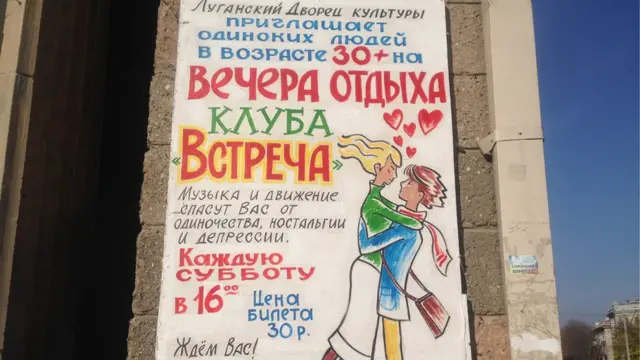 Луганский Дворец культуры
приглашает
одиноких людей
в возрасте 30+ на
Вечера отдыха
клуба
«Встреча»
Музыка и движение
спасут Вас от
одиночества, ностальгии
и депрессии.
Каждую
субботу
в 16⁰⁰
Цена
билета
30 р.
Ждём Вас!